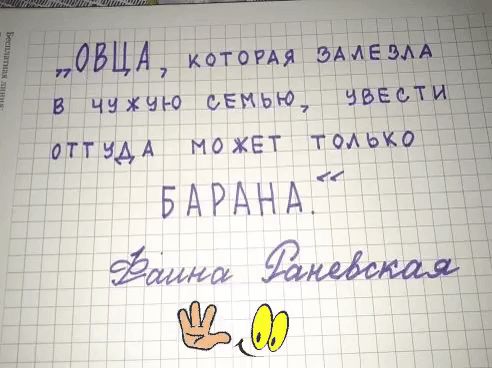 „ОВЦА, КОТОРАЯ ЗАЛЕЗЛА
В ЧУЖУЮ СЕМЬЮ, УВЕСТИ
ОТТУДА МОЖЕТ ТОЛЬКО
БАРАНА.“
Фаина Раневская
Бесплатная линия: